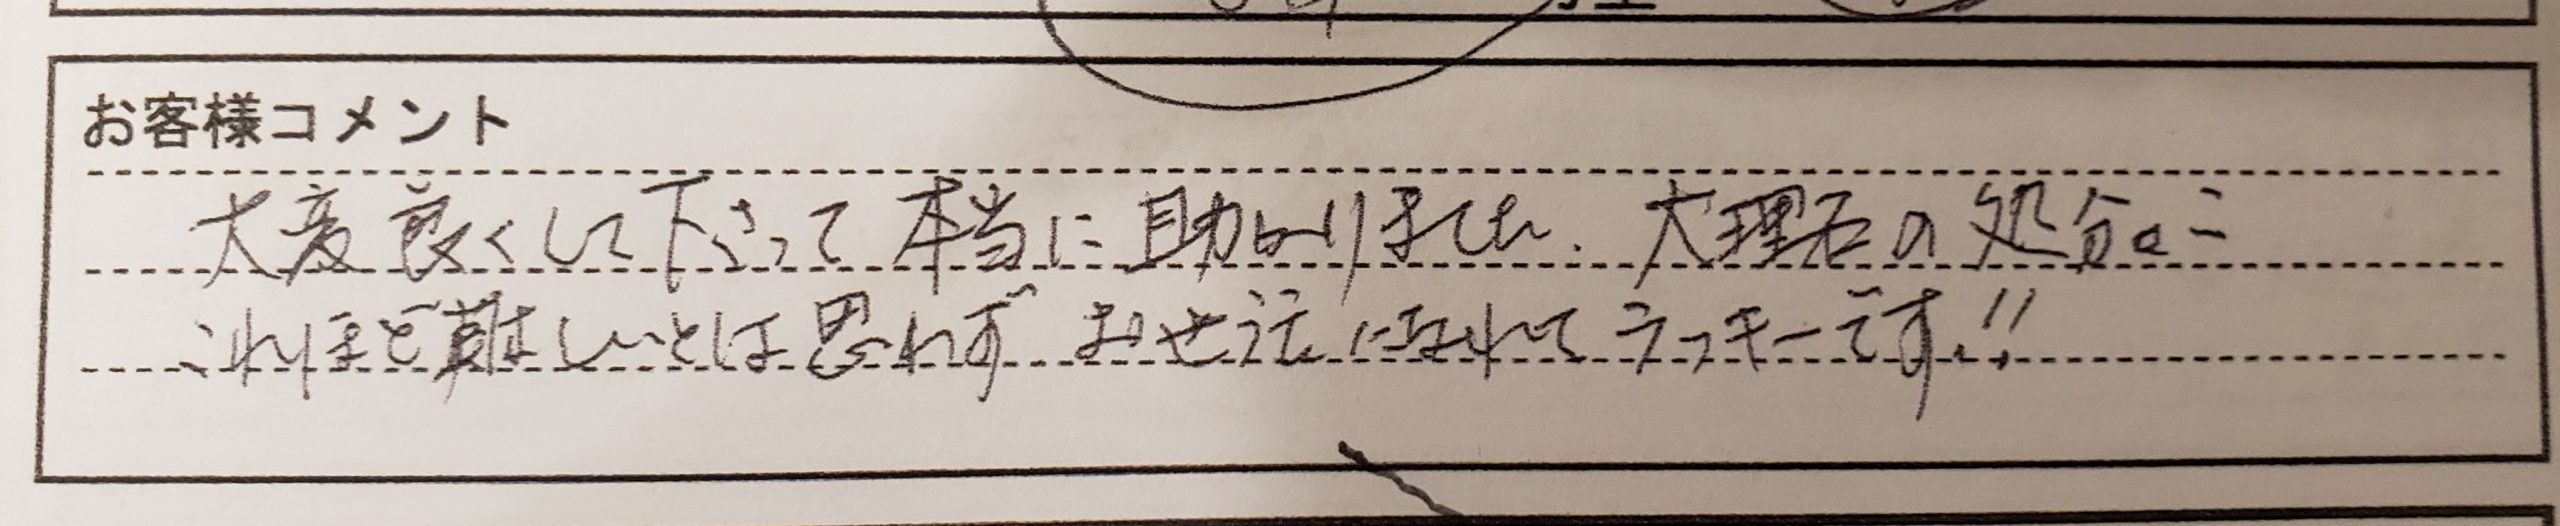 お客様コメント
大変良くして下さって本当に助かりました。大理石の処分が
これほど難しいとは思わず お世話になれてラッキーです!!